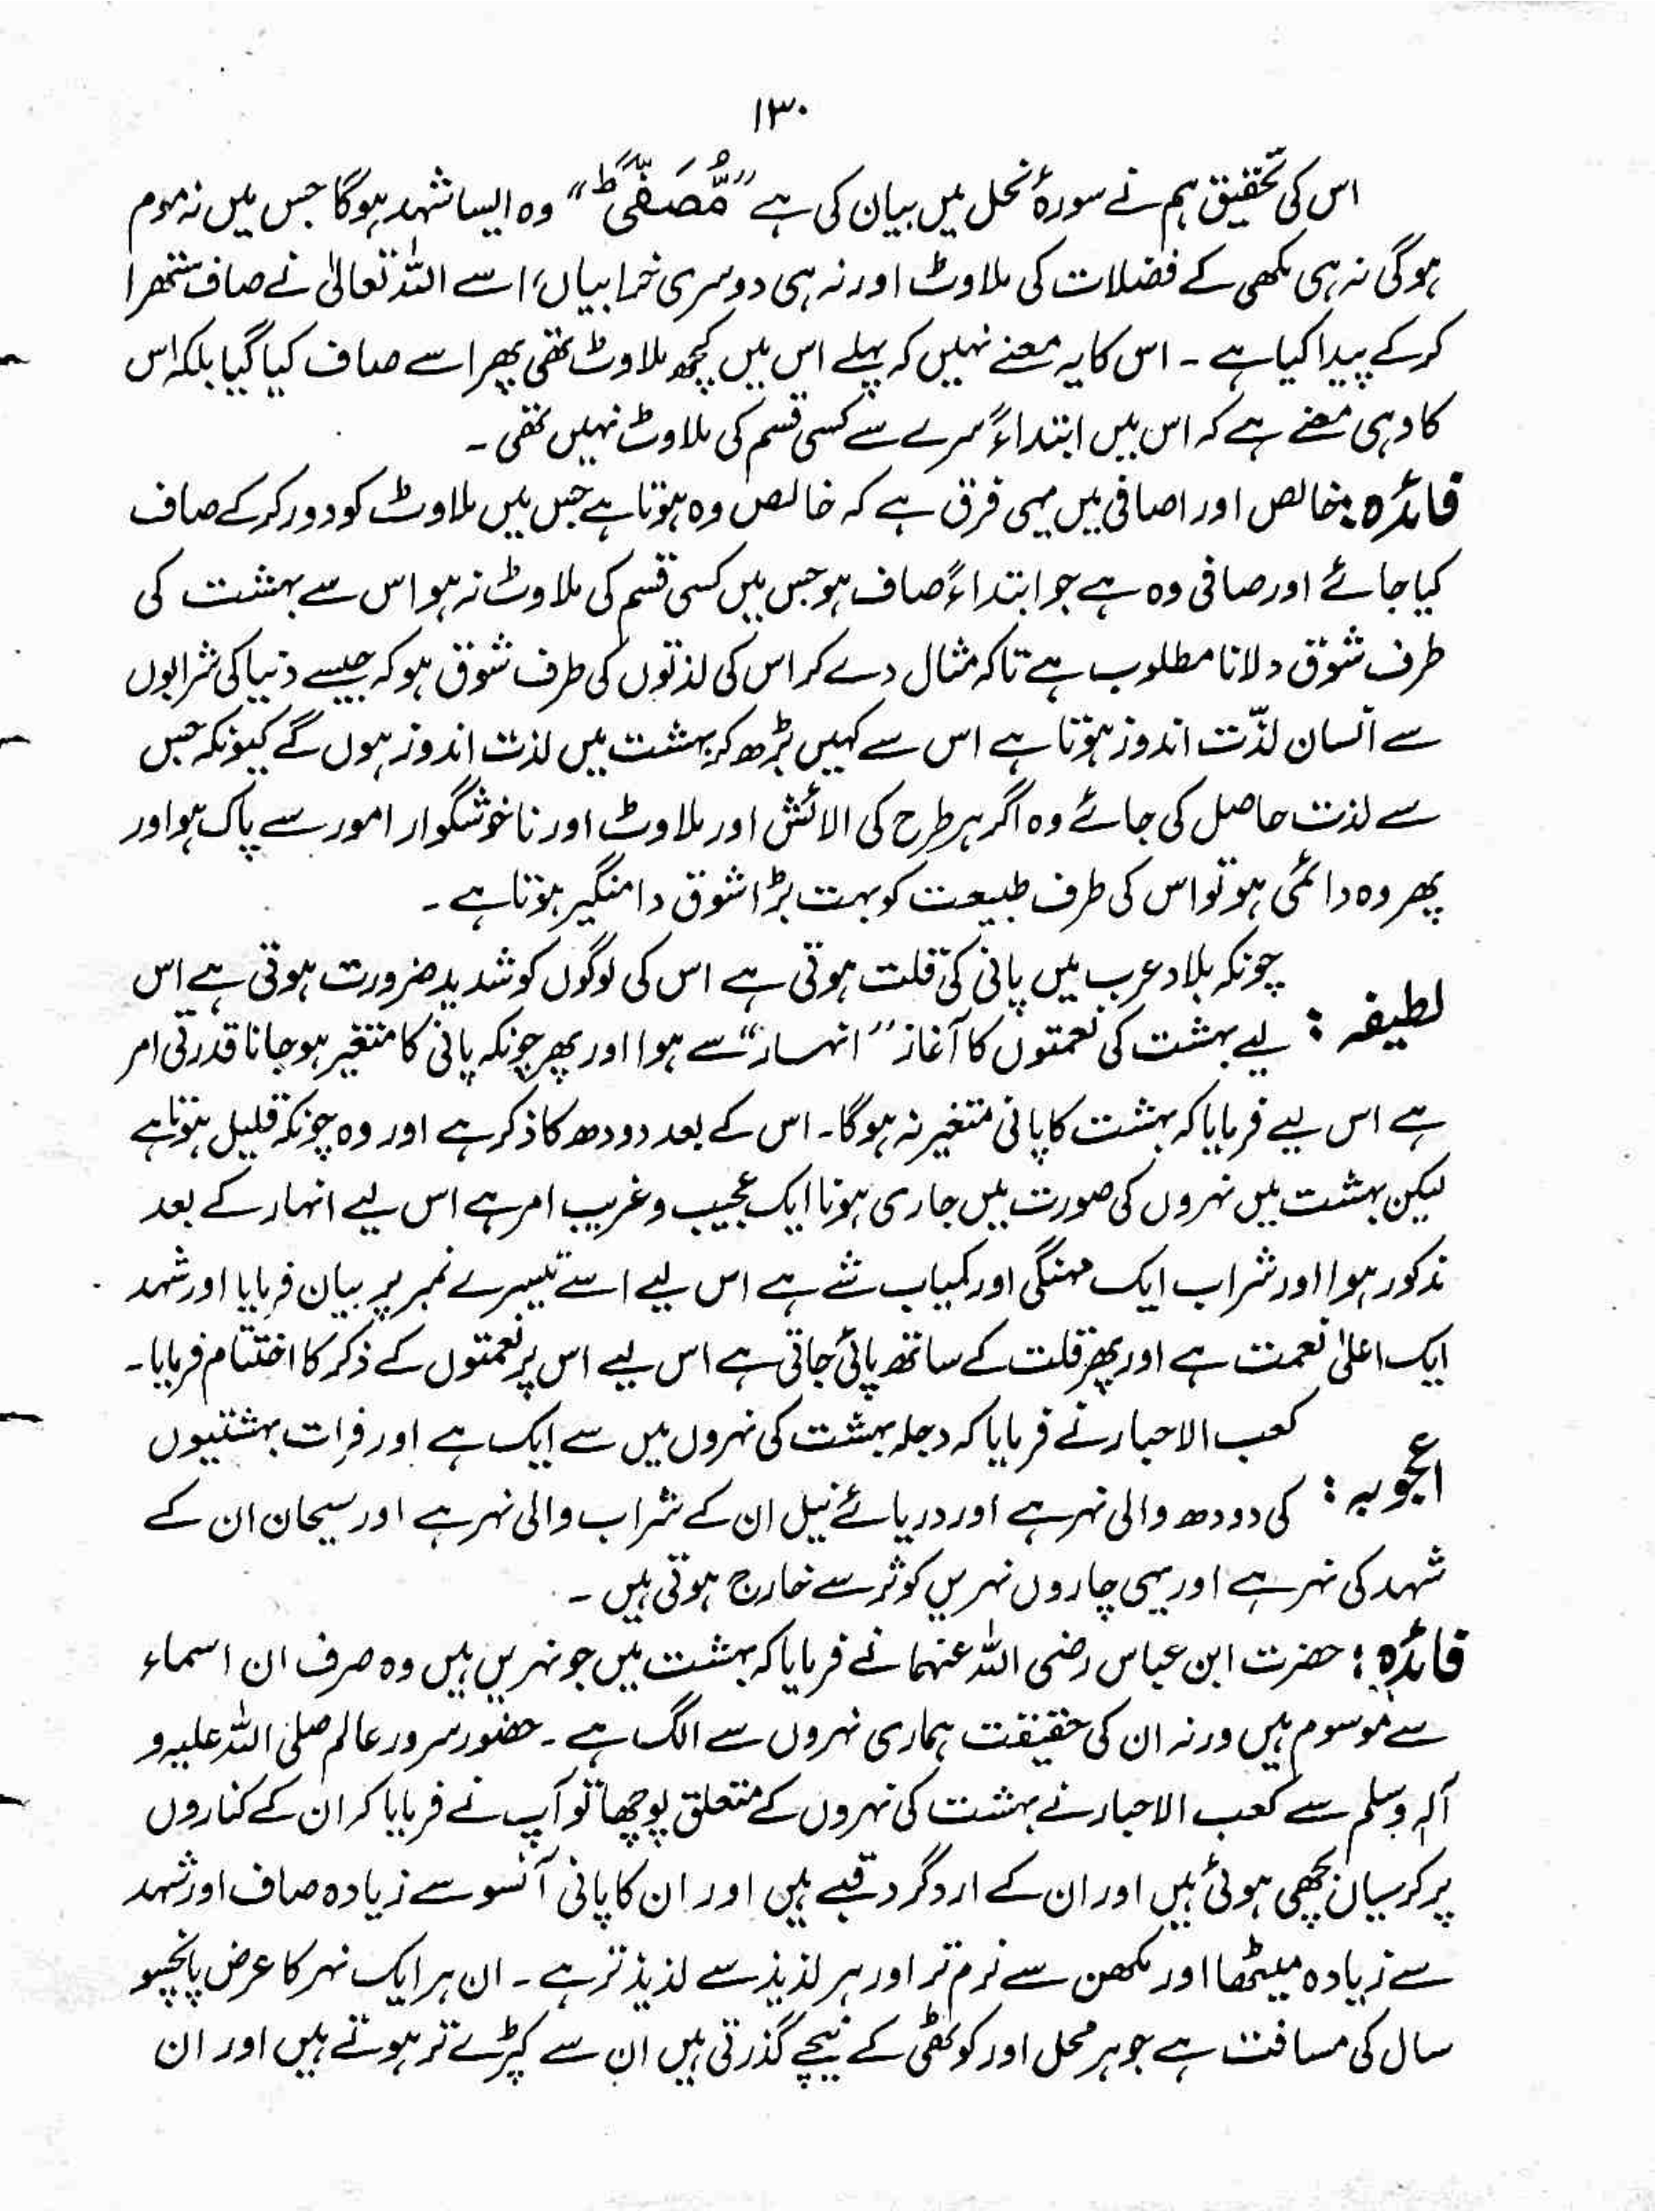 ۱۳۰
اس کی تحقیق ہم نے سورۂ نحل میں بیان کی ہے ”مُّصَفًّیؕ“ وہ ایسا شہد ہوگا جس میں نہ موم
ہوگی نہ ہی مکھی کے فضلات کی ملاوٹ اور نہ ہی دوسری خرابیاں، اسے اللہ تعالیٰ نے صاف ستھرا
کرکے پیدا کیا ہے ۔ اس کا یہ معنے نہیں کہ پہلے اس میں کچھ ملاوٹ تھی پھر اسے صاف کیا گیا بلکہ اس
کا وہی معنے ہے کہ اس میں ابتداءً سرے سے کسی قسم کی ملاوٹ نہیں تھی ۔
فائدہ : خالص اور اصافی میں یہی فرق ہے کہ خالص وہ ہوتا ہے جس میں ملاوٹ کو دور کرکے صاف
کیا جائے اور صافی وہ ہے جو ابتداءً صاف ہو جس میں کسی قسم کی ملاوٹ نہ ہو اس سے بہشت کی
طرف شوق دلانا مطلوب ہے تاکہ مثال دے کر اس کی لذتوں کی طرف شوق ہو کہ جیسے دنیا کی شرابوں
سے انسان لذّت اندوز ہوتا ہے اس سے کہیں بڑھ کر بہشت میں لذت اندوز ہوں گے کیونکہ جس
سے لذت حاصل کی جائے وہ اگر ہر طرح کی الائش اور ملاوٹ اور ناخوشگوار امور سے پاک ہو اور
پھر وہ دائمی ہو تو اس کی طرف طبیعت کو بہت بڑا شوق دامنگیر ہوتا ہے ۔
چونکہ بلاد عرب میں پانی کی قلت ہوتی ہے اس کی لوگوں کو شدید ضرورت ہوتی ہے اس
لطیفہ : لیے بہشت کی نعمتوں کا آغاز ”انہار“ سے ہوا اور پھر چونکہ پانی کا متغیر ہو جانا قدرتی امر
ہے اس لیے فرمایا کہ بہشت کا پانی متغیر نہ ہوگا۔ اس کے بعد دودھ کا ذکر ہے اور وہ چونکہ قلیل ہوتا ہے
لیکن بہشت میں نہروں کی صورت میں جاری ہونا ایک عجیب و غریب امر ہے اس لیے انہار کے بعد
مذکور ہوا اور شراب ایک مہنگی اور کمیاب شے ہے اس لیے اسے تیسرے نمبر پر بیان فرمایا اور شہد
ایک اعلیٰ نعمت ہے اور پھر قلت کے ساتھ پائی جاتی ہے اس لیے اس پر نعمتوں کے ذکر کا اختتام فرمایا۔
کعب الاحبار نے فرمایا کہ دجلہ بہشت کی نہروں میں سے ایک ہے اور فرات بہشتیوں
اعجوبہ : کی دودھ والی نہر ہے اور دریائے نیل ان کے شراب والی نہر ہے اور سیحان ان کے
شہد کی نہر ہے اور یہی چاروں نہریں کوثر سے خارج ہوتی ہیں ۔
فائدہ : حضرت ابن عباس رضی اللہ عنہما نے فرمایا کہ بہشت میں جو نہریں ہیں وہ صرف ان اسماء
سے موسوم ہیں ورنہ ان کی حقیقت ہماری نہروں سے الگ ہے ۔ حضور سرور عالم صلی اللہ علیہ و
آلہٖ وسلم سے کعب الاحبار نے بہشت کی نہروں کے متعلق پوچھا تو آپ نے فرمایا کہ ان کے کناروں
پر کرسیاں بچھی ہوئی ہیں اور ان کے اردگرد قبے ہیں اور ان کا پانی آنسو سے زیادہ صاف اور شہد
سے زیادہ میٹھا اور مکھن سے نرم تر اور ہر لذیذ سے لذیذ تر ہے ۔ ان ہر ایک نہر کا عرض پانچسو
سال کی مسافت ہے جو ہر محل اور کوٹھی کے نیچے گذرتی ہیں ان سے کپڑے تر ہوتے ہیں اور ان